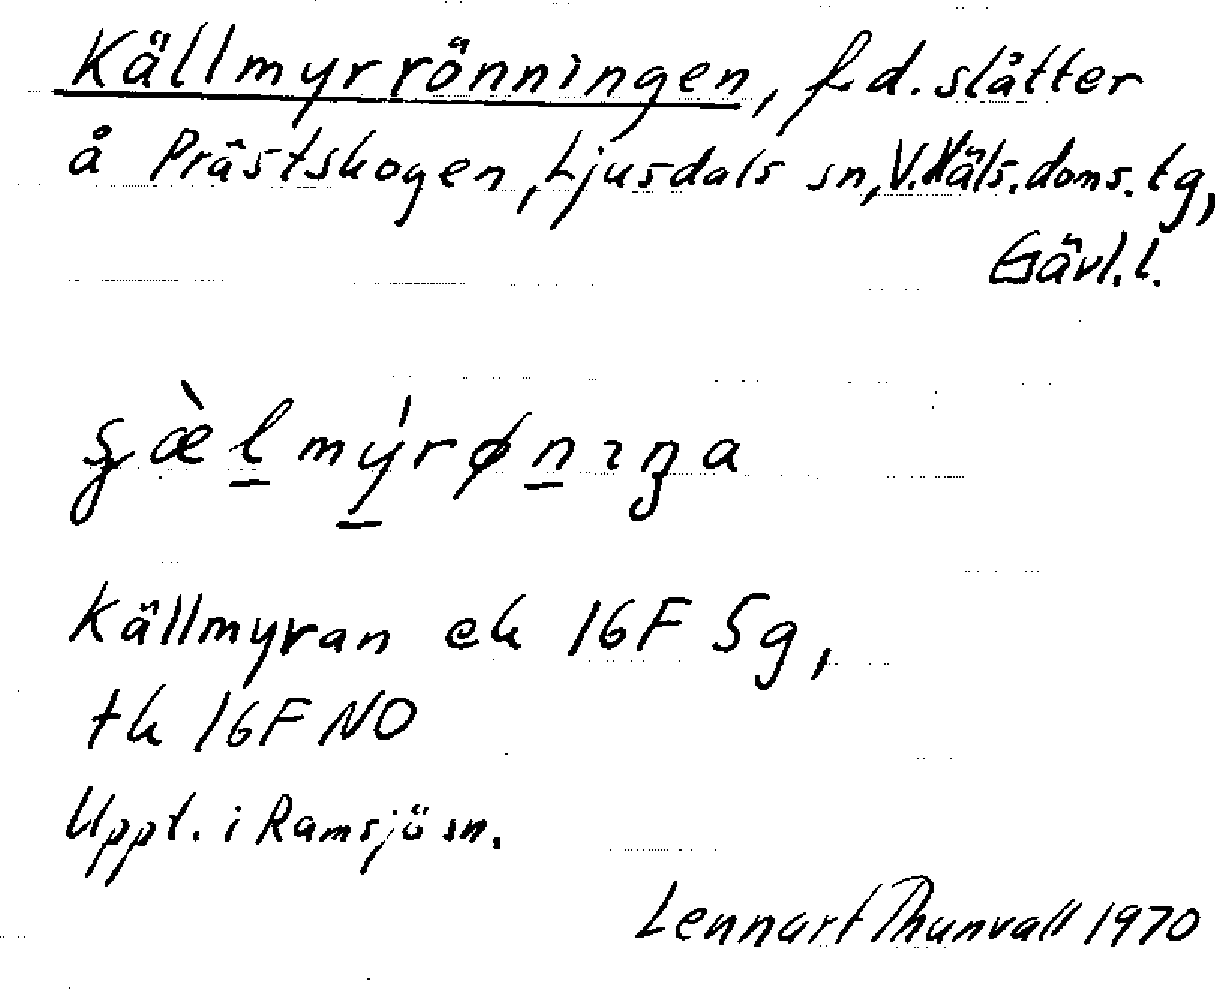 Källmyrrönningen, f d. slåtter
å Prästskogen, Ljusdals sn, V. Häls. doms. tg,
Gävl. l.
Källmyran ek 16F 5g,
tk 16F NO
Uppt. i Ramsjö sn.
Lennart Thunvall 1970